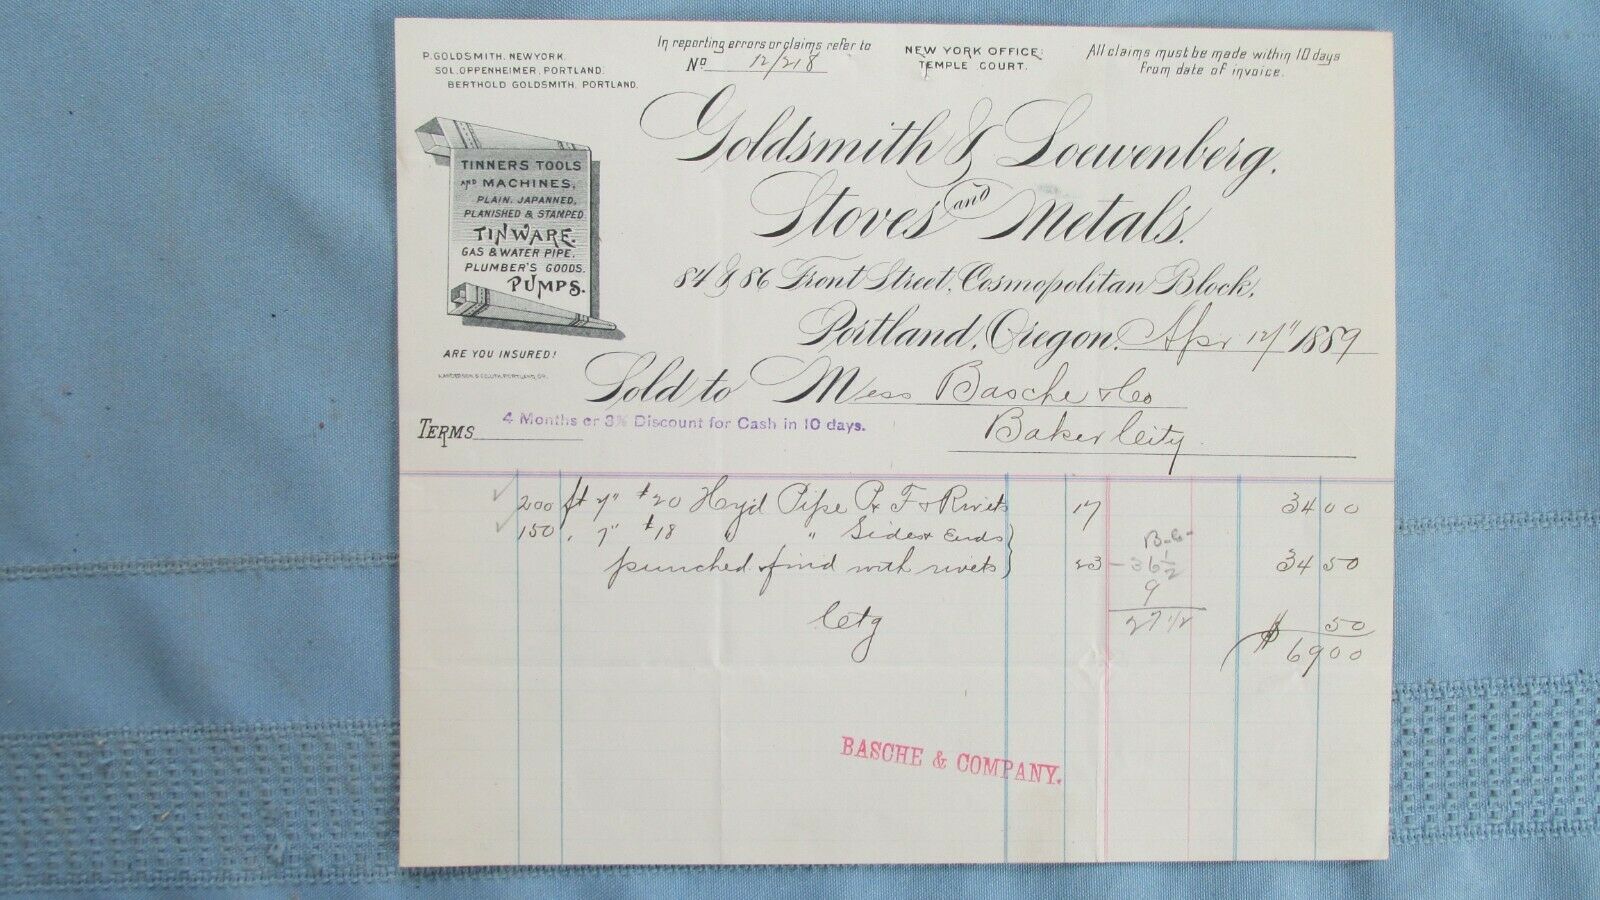 P. GOLDSMITH, NEW YORK.
SOL. OPPENHEIMER, PORTLAND.
BERTHOLD GOLDSMITH, PORTLAND.
In reporting errors or claims refer to
No 12/218
NEW YORK OFFICE:
TEMPLE COURT.
All claims must be made within 10 days
from date of invoice.
Goldsmith & Loewenberg.
Stoves and Metals.
84 & 86 Front Street, Cosmopolitan Block,
Portland, Oregon. Apr 12" 1889
TINNERS TOOLS
AND MACHINES,
PLAIN, JAPANNED,
PLANISHED & STAMPED
TINWARE.
GAS & WATER PIPE,
PLUMBER'S GOODS.
PUMPS.
ARE YOU INSURED!
Sold to Mess Basche & Co
Baker City.
TERMS 4 Months or 3% Discount for Cash in 10 days.
200 ft 7" #20 Hyd Pipe P & F & Rivets 17 34 00
150 " 7" #18 " " Sides & Ends
punched & find with rivets 23 34 50
B.C.
36 1/2
9
27 1/2
Ctg 50
$ 69 00
BASCHE & COMPANY.